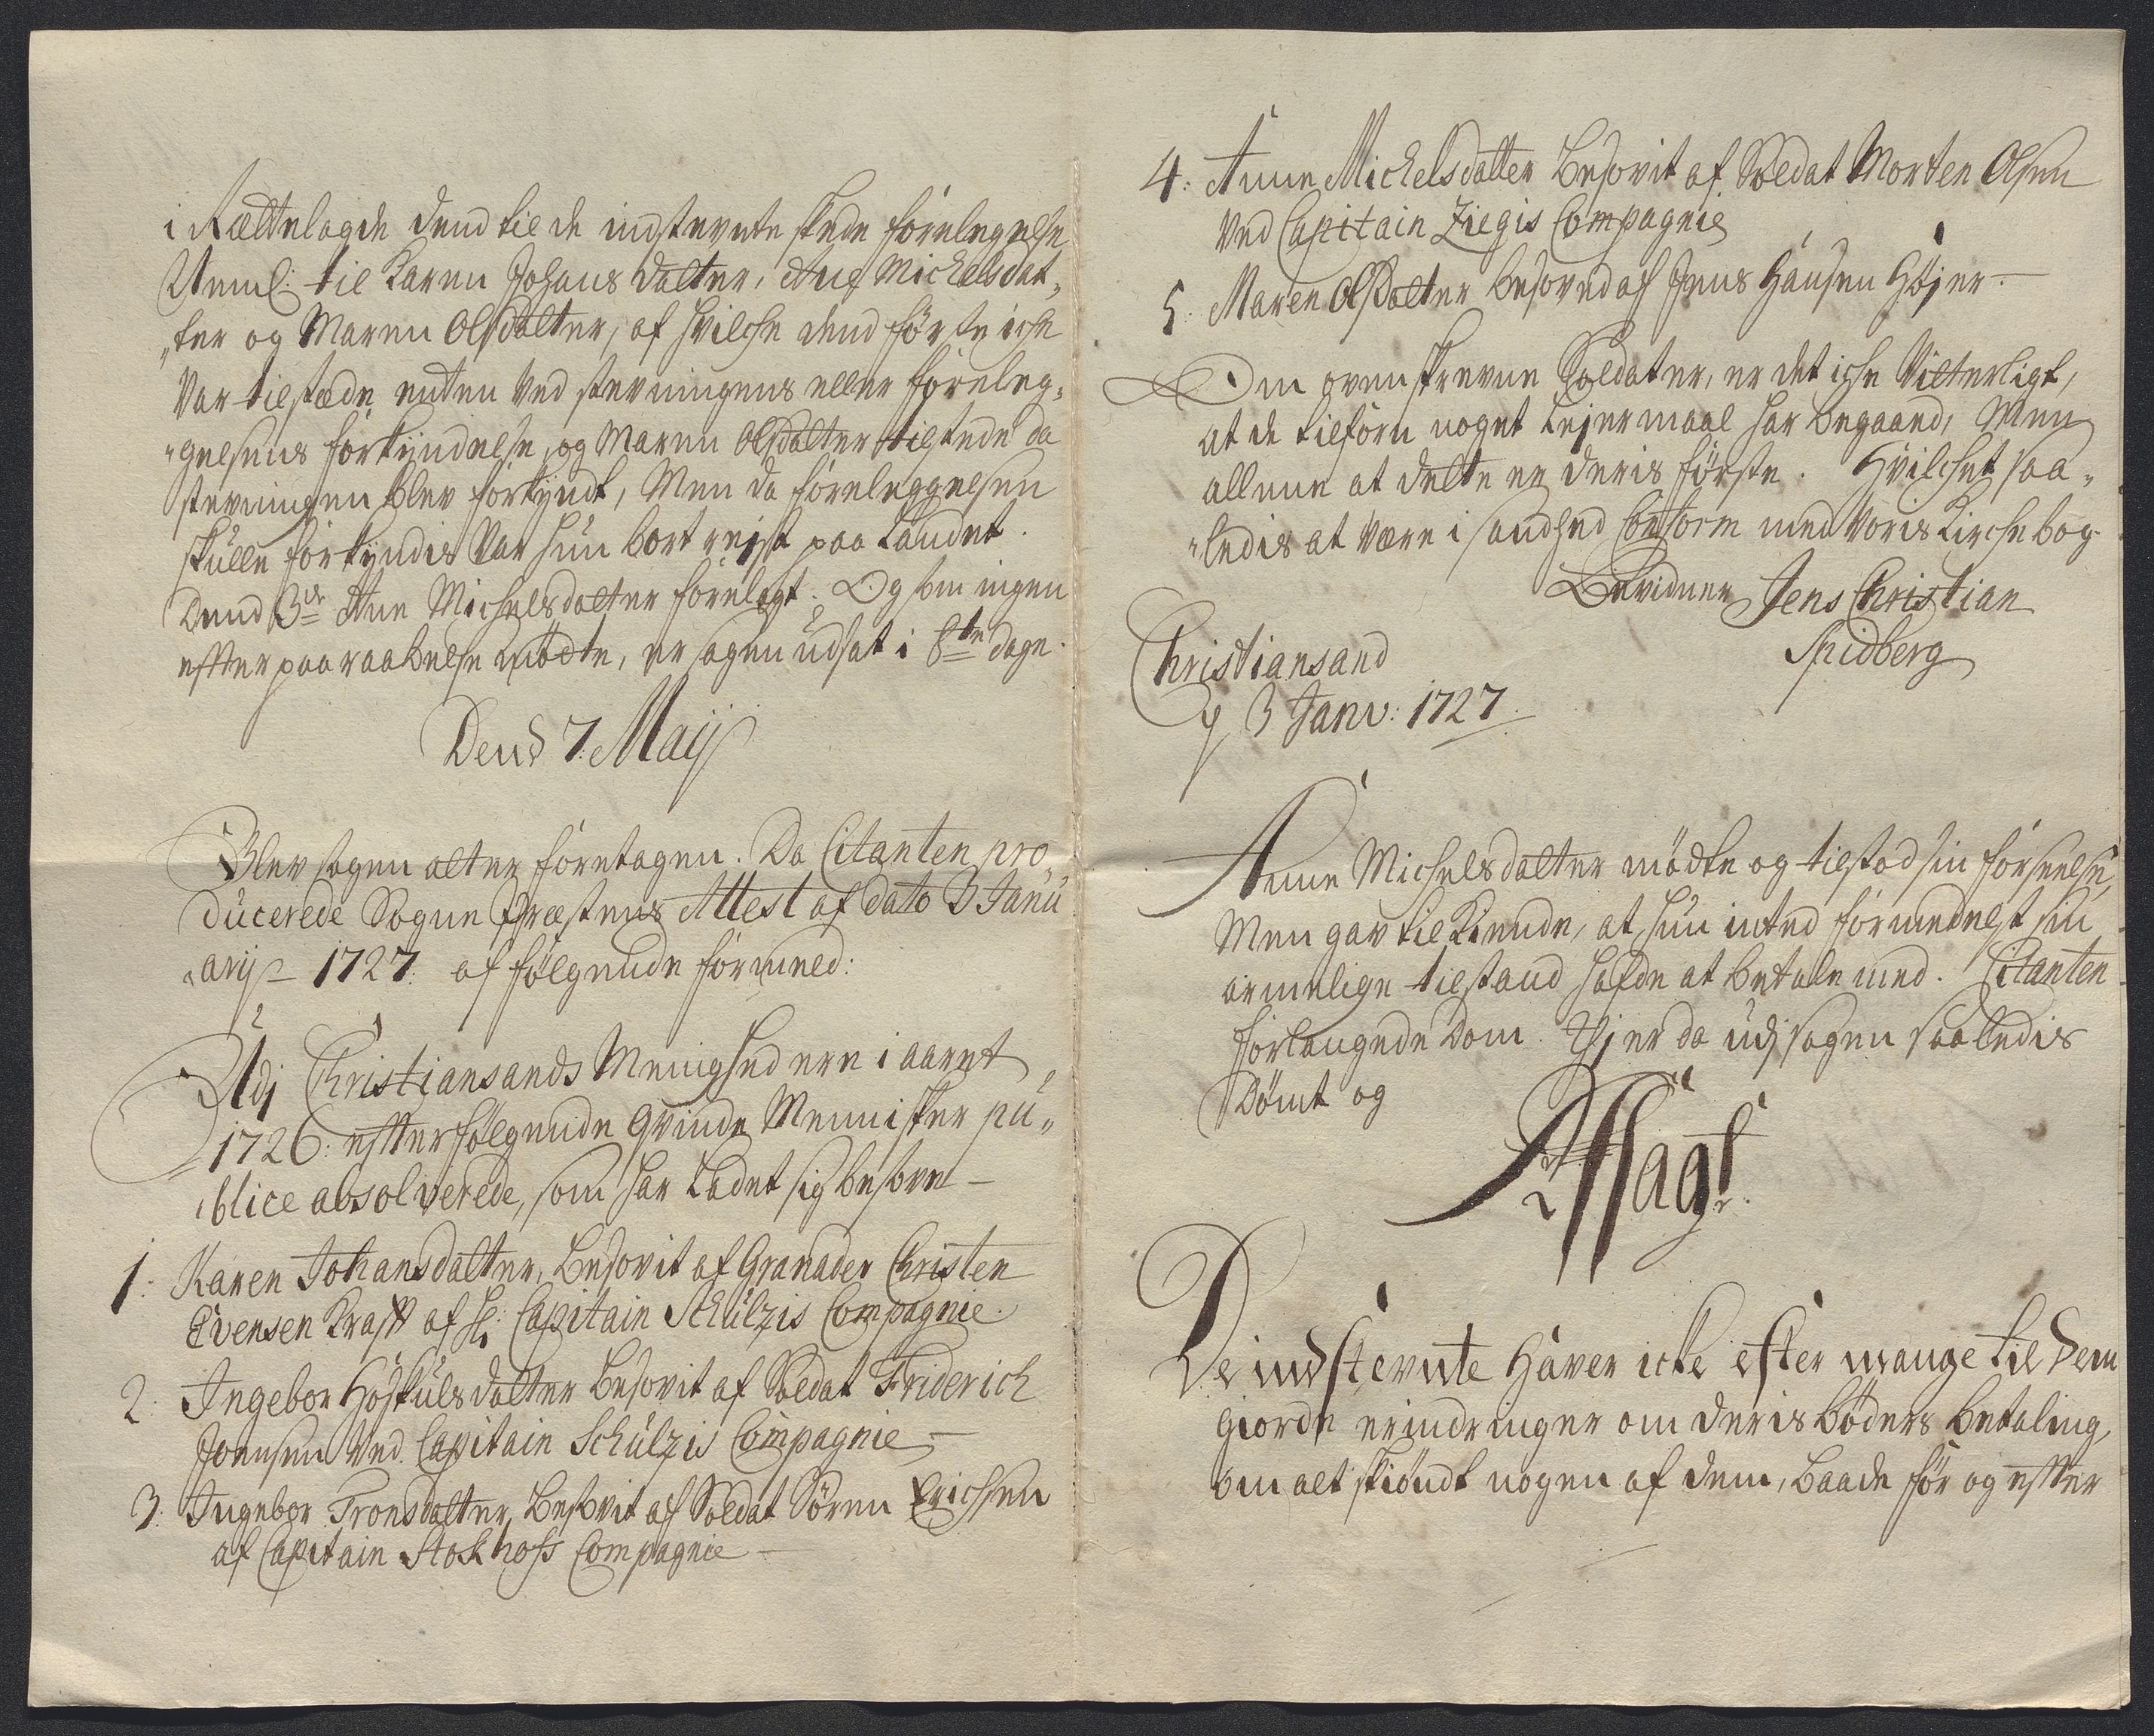 i Rættelagde dend til de indstevnte skede forelegelse
Neml: til Karen Johansdatter, Ane Michelsdat„
„ter og Maren Olsdatter, af hvilche dend første iche
Var tilstæde enten Ved stevningens eller foreleg„
„gelsens forkyndelse, og Maren Olsdatter tilstede da
stevningen blev forkyndt, Men da foreleggelsen
skulle forkyndis Var hun bort rejst paa Landet.
Dend 3de Ane Michelsdatter forelagt. Og som ingen
efter paaraabelse mødte, er sagen udsat i 8te dage.
Dend 7. Maij
Blev sagen atter foretagen. Da Citanten pro„
ducerede Sogne Præstens Attest af dato 3 Janu
„arij 1727. af følgende formeld:
Udj Christiansands Menighed ere i aaret
1726: efterfølgende Qvinde Mennisker pu„
„blice absolverede, som har Ladet sig besove
1: Karen Johansdatter, Besovit af Granader Christen
Evensen Kraft af Hr: Capitain Schülzis Compagnie.
2: Ingebor Høskulsdatter Besovit af Soldat Friderich
Joensen Ved Capitain Schülzis Compagnie
3: Ingebor Tronsdatter, Besovit af Soldat Søren Erichsen
af Capitain Stokhofs Compagnie
4: Anne Michelsdatter Besovit af Soldat Morten Olsen
Ved Capitain Ziegis Compagnie
5: Maren Olsdatter besoved af Jens Hansen Højer
Om ovenskrevne Soldater, er det iche Vitterligt,
at de tilforn noget Lejermaal har begaaed, Men
allene at dette er deris første. Hvilchet saa„
„ledis at Være i sandhed Conform med Voris Kirche bog
Bevidner Jens Christian
Spidberg
Christiansand
d 3 Janv: 1727.
Anne Michelsdatter mødte og tilstod sin forseelse,
Men gav tilkiende, at hun inted formedelst sin
armelige tilstand hafde at betale med. Citanten
forlangede Dom. Thj er da udj sagen saaledis
Dømt og
Afsagt.
De indstevnte Haver icke efter mange til dem
giorde erindringer om deris bøders betaling,
om alt skiøndt nogen af dem, baade før og efter